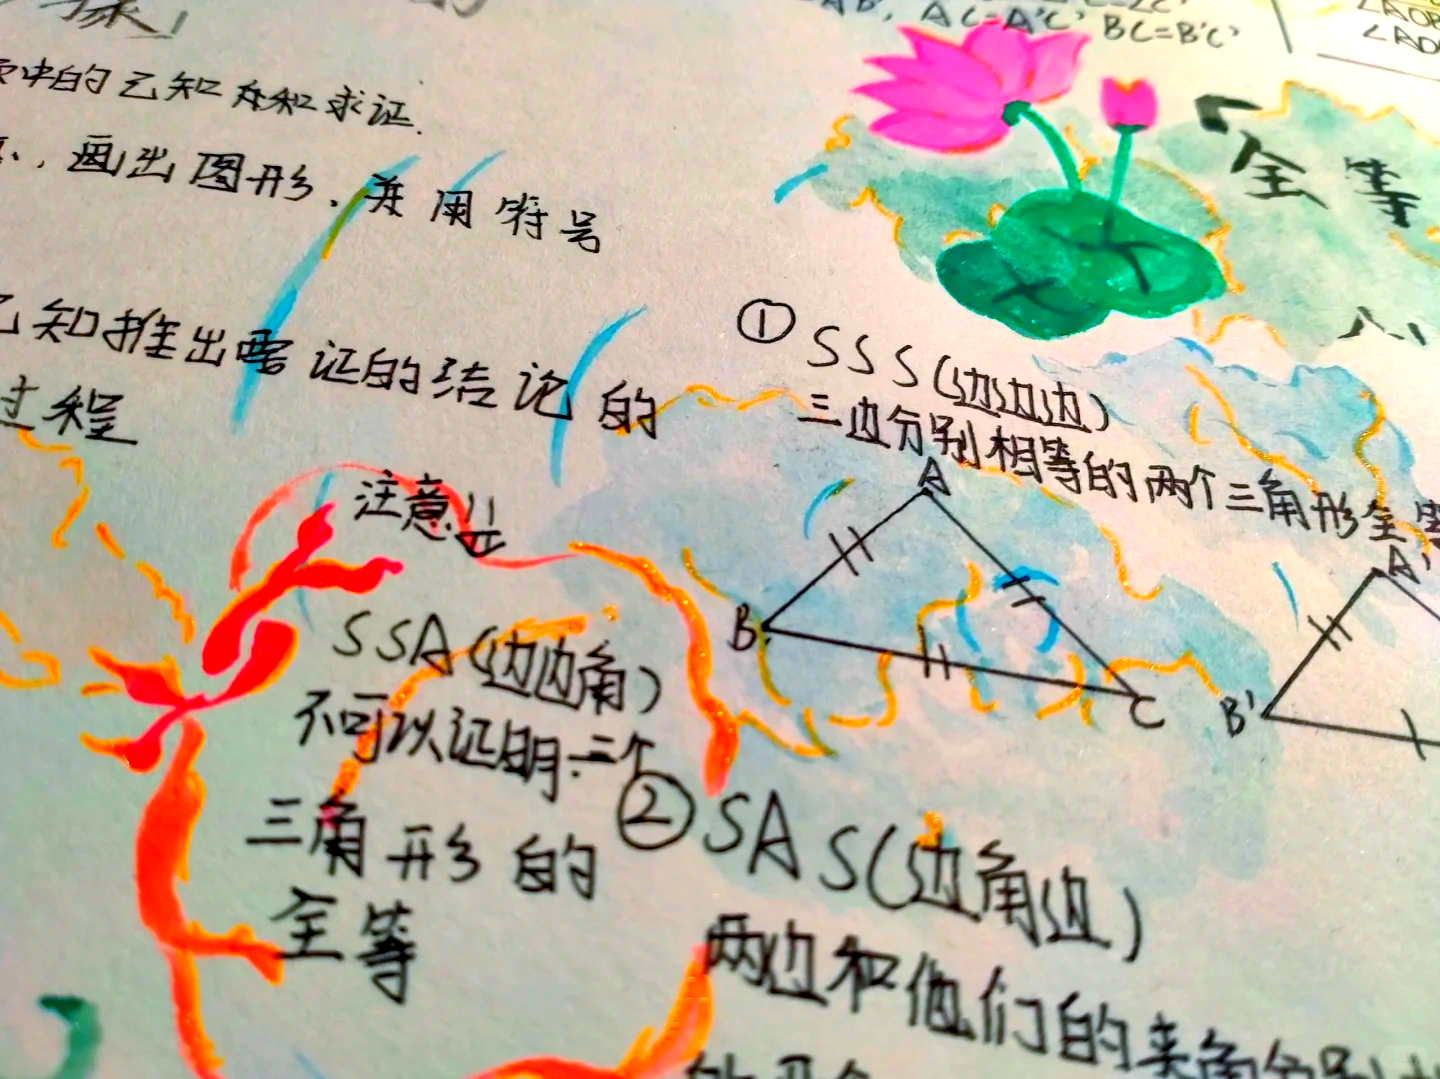 中的已知和求证.
画出图形.并用符号
已知推出需证的结论的
过程
注意!!
SSA(边边角)
不可以证明.三个
三角形的
全等
AC=A'C' BC=B'C'
「全等
① SSS(边边边)
三边分别相等的两个三角形全等
A
B
C
A'
B'
② SAS(边角边)
两边和他们的夹角分别